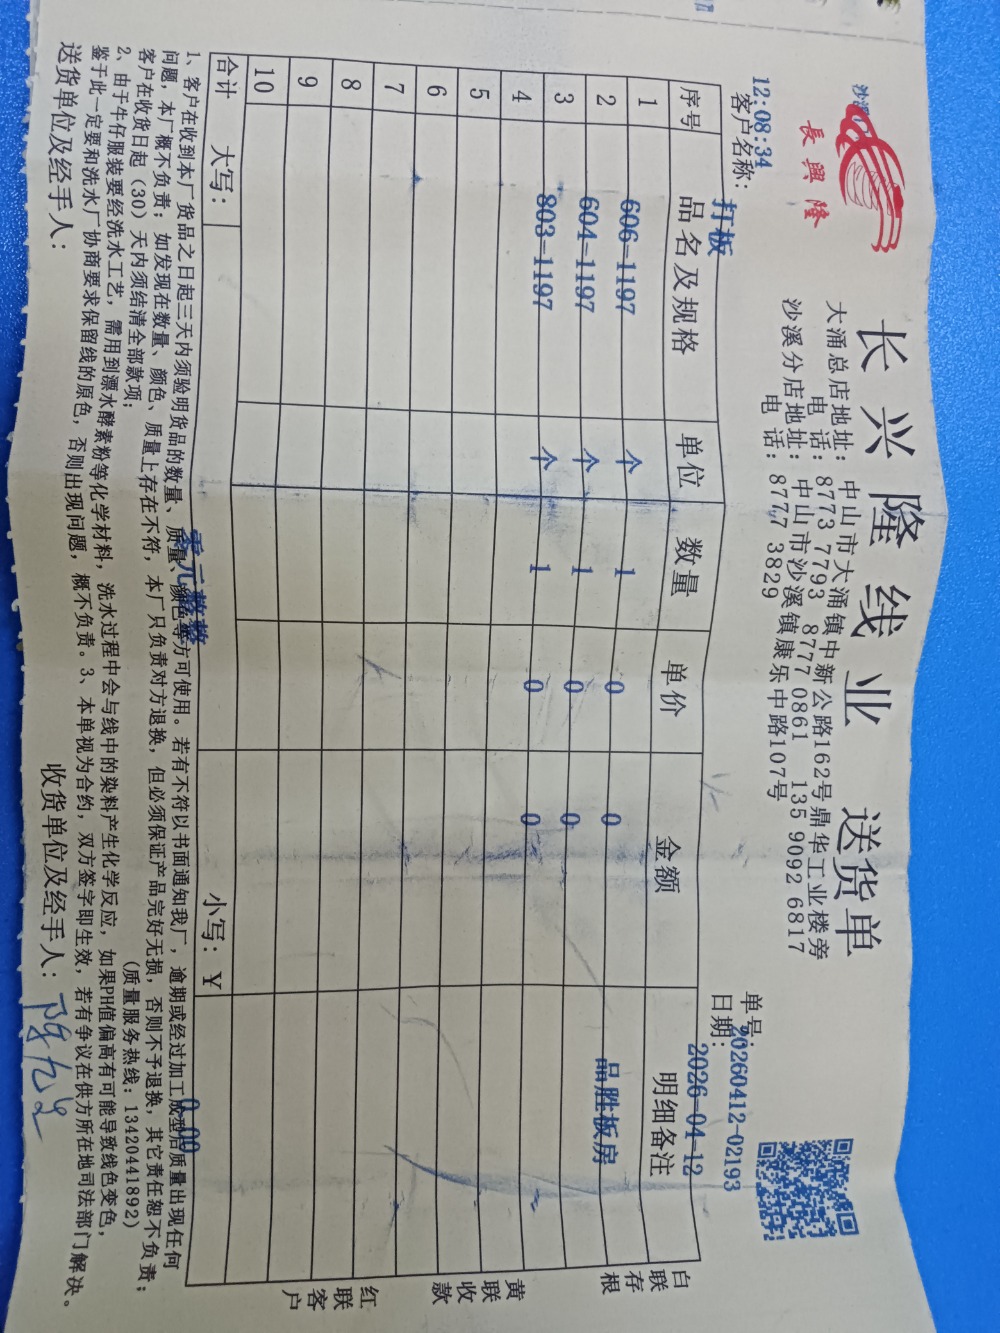 長興隆
沙溪
长兴隆线业 送货单
大涌总店地址：中山市大涌镇中新公路162号鼎华工业楼旁
电 话：8773 7793 8777 0861 135 9092 6817
沙溪分店地址：中山市沙溪镇康乐中路107号
电 话：8777 3829
12:08:34
单号：20260412-02193
客户名称：打板
日期：2026-04-12
序号 品名及规格 单位 数量 单价 金额 明细备注
1 606-1197 个 1 0 0 品胜板房
2 604-1197 个 1 0 0
3 803-1197 个 1 0 0
4
5
6
7
8
9
10
合计 大写：零元整整 小写：￥ 0.00
白联存根
黄联收款
红联客户
1、客户在收到本厂货品之日起三天内须验明货品的数量、质量、颜色等方可使用。若有不符以书面通知我厂，逾期或经过加工成型后质量出现任何
问题，本厂概不负责；如发现在数量、颜色、质量上存在不符，本厂只负责对方退换，但必须保证产品完好无损，否则不予退换，其它责任恕不负责；
客户在收货日起（30）天内须结清全部款项；
（质量服务热线：13420441892）
2、由于牛仔服装要经洗水工艺，需用到漂水酵素粉等化学材料，洗水过程中会与线中的染料产生化学反应，如果PH值偏高有可能导致线色变色，
鉴于此一定要和洗水厂协商要求保留线的原色，否则出现问题，概不负责。3、本单视为合约，双方签字即生效，若有争议在供方所在地司法部门解决。
送货单位及经手人：
收货单位及经手人：